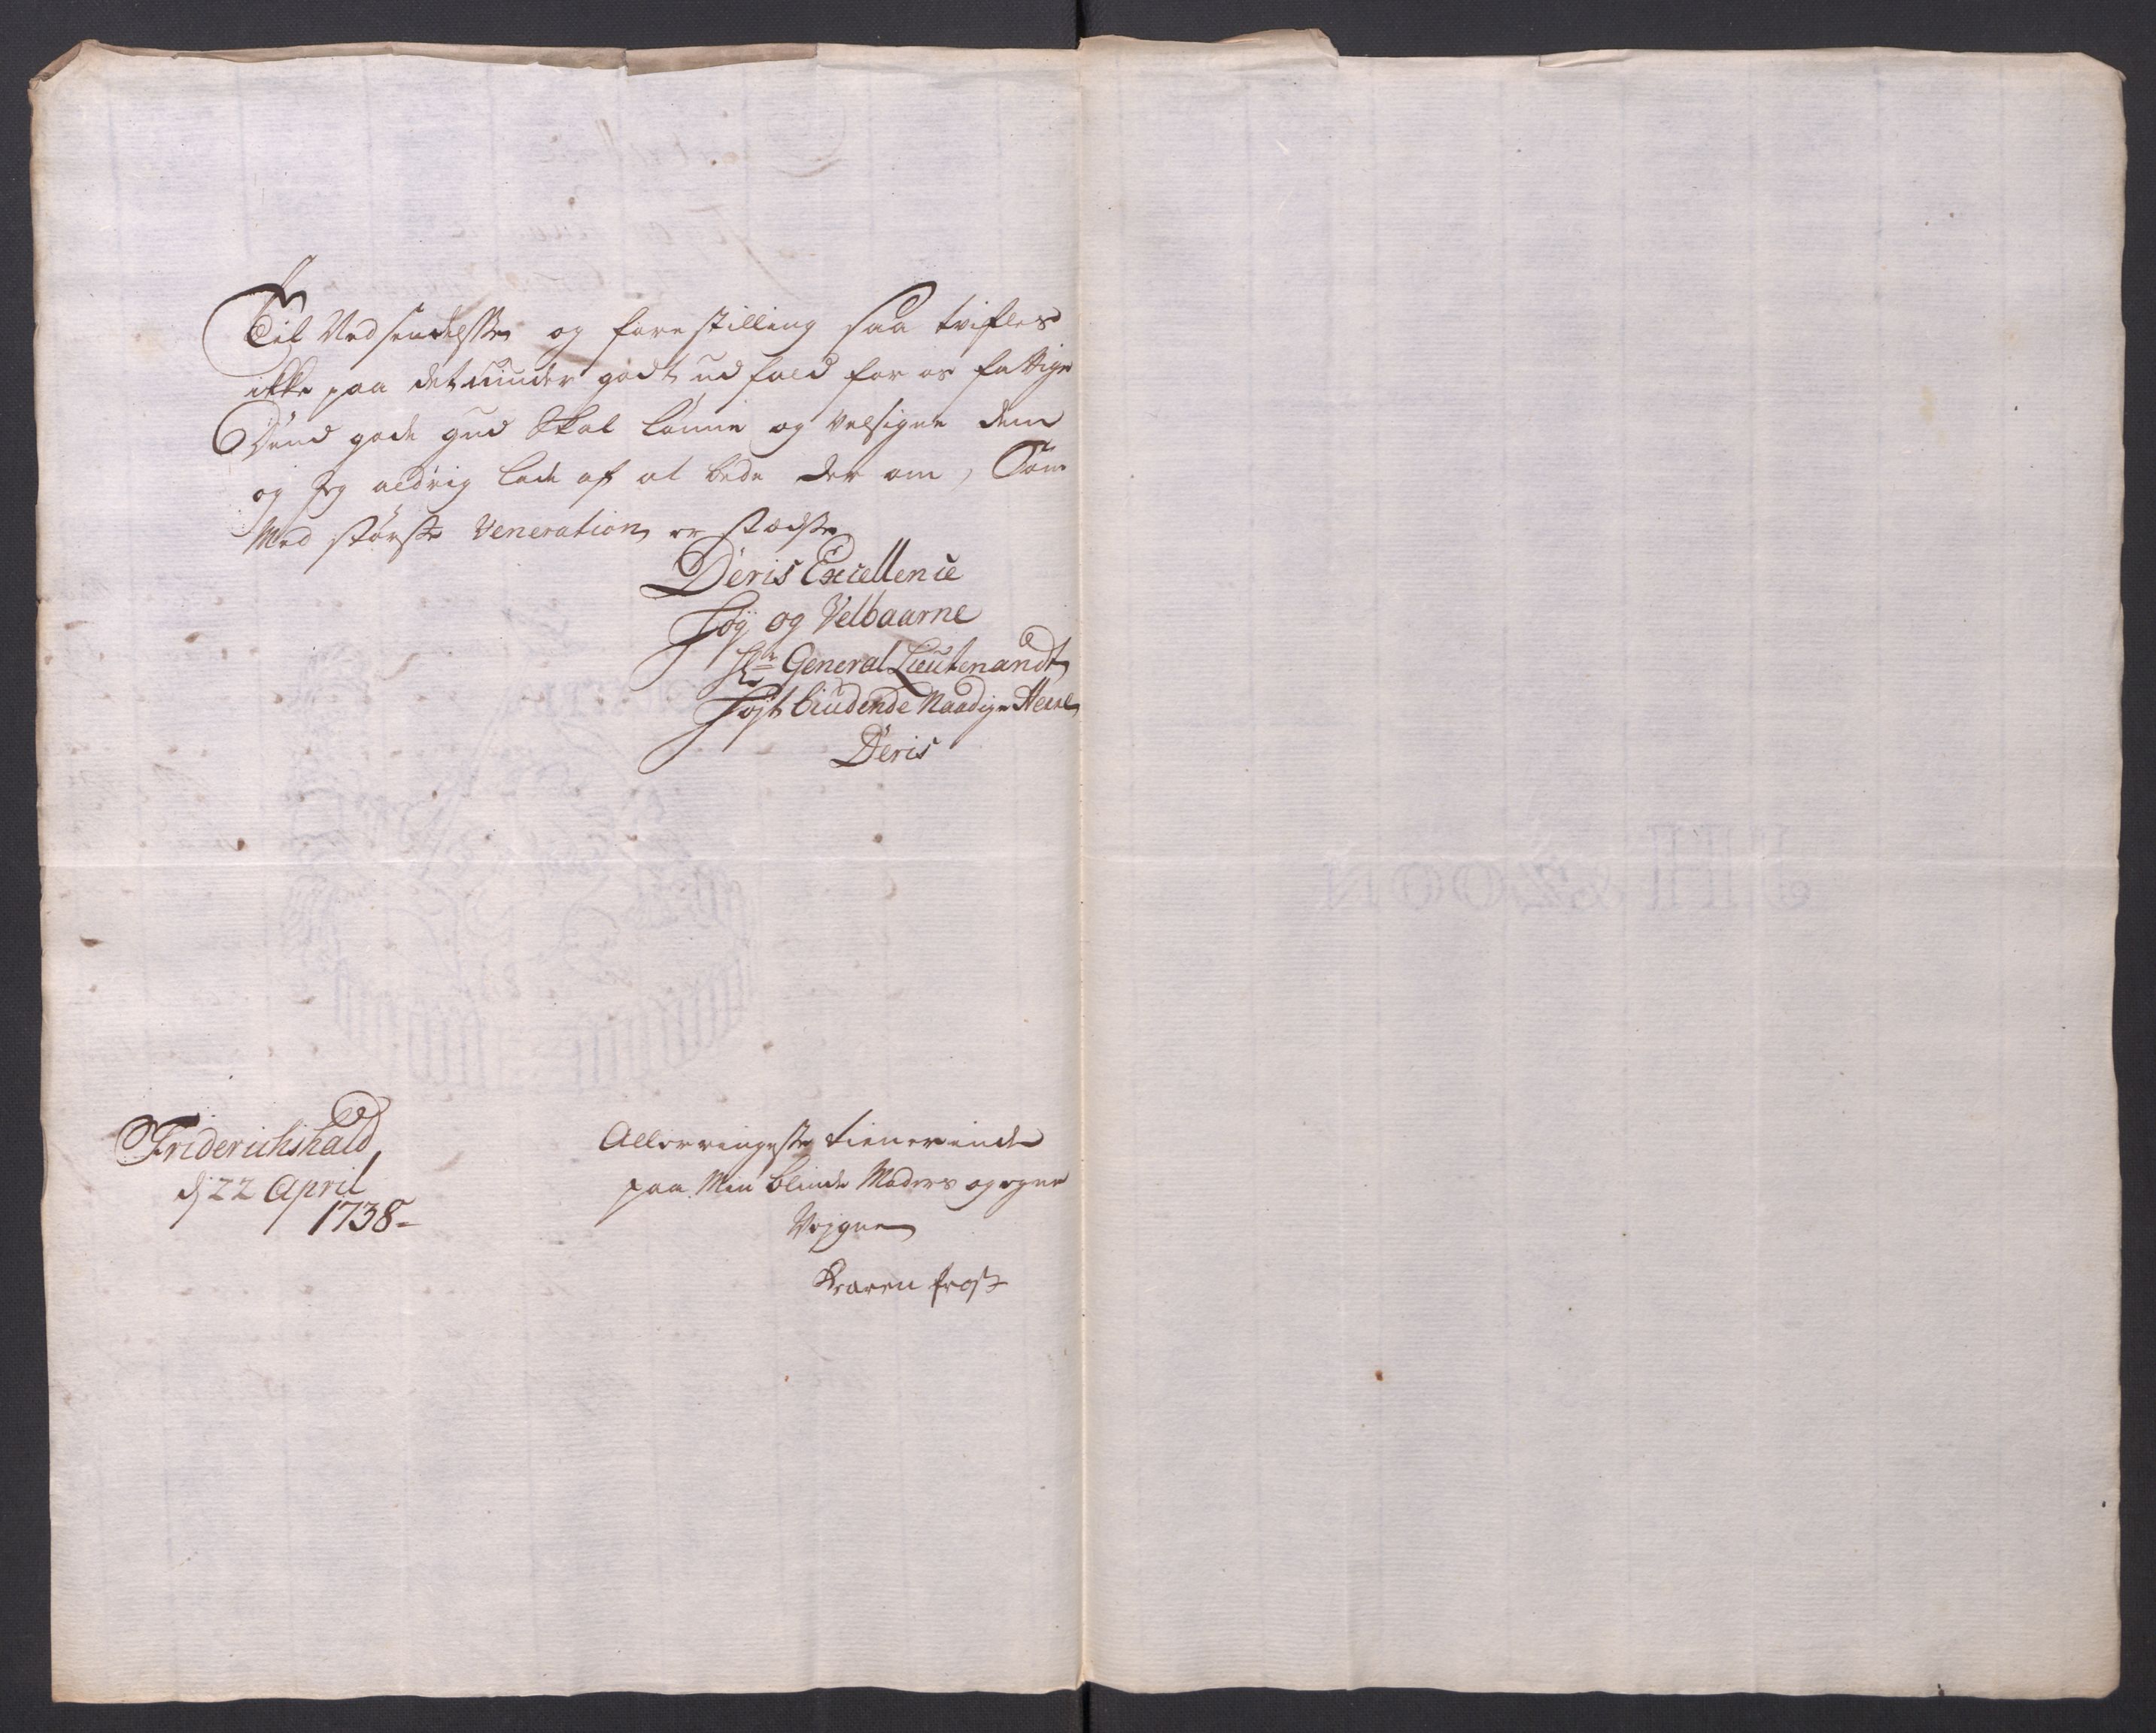 Til Nedsendelsse og forestilling saa tvifles
ikke paa det uunder godt udfald for os fattige
Dend gode gud Skal Lønne og velsigne dem
og Jeg aldrig lade af at bede der om, Som
Med største Veneration er stedsse
Deris Excellence
Høy og Velbaarne
Hr General Lieutenandt
Høyt biudende Naadige Herre
Deris
Friderichshald
dj 22 April
1738-
Allerringeste tienerinde
paa Min blinde Moders og egne
Vegne
Karen Frost